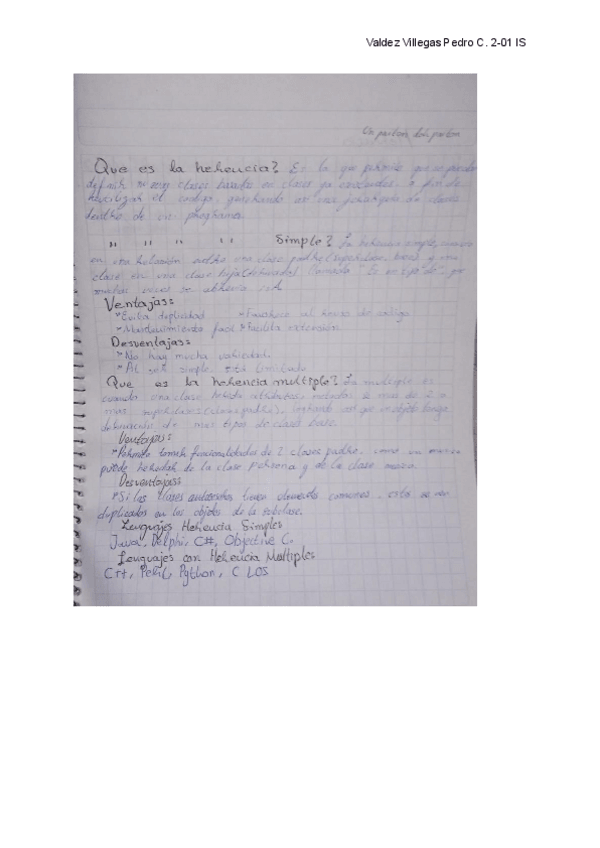 Valdez Villegas Pedro C. 2-01 IS
Que es la herencia? Es la que permite que se puedan
definir nuevas clases basadas en clases ya existentes a fin de
reutilizar el codigo, generando así una jerarquía de clases
dentro de un programa.
" " " " Simple? La herencia simple, cuando
en una relación entre una clase padre (superclase, base) y una
clase en una clase hija (derivada) llamada "Es un tipo de", que
muchas veces se abrevia isA
Ventajas:
*Evita duplicidad *Favorece al reuso de codigo
*Mantenimiento facil *Facilita extención
Desventajas:
*No hay mucha variedad.
*Al ser simple, está limitado
Que es la herencia multiple? La multiple es
cuando una clase hereda atributos, metodos a mas de 2 o
mas superclases (clases padre), logrando así que un objeto tenga
definición de mas tipos de clases base.
Ventajas:
*Permite tomar funcionalidades de 2 clases padre, como un
puede heredar de la clase persona y de la clase
Desventajas:
*Si las clases tienen elementos comunes, esta se ven
duplicados en los objetos de la subclase.
Lenguajes Herencia Simples
Java, Delphi, C#, Objective C.
Lenguajes con Herencia Multiples
C++, Perl, Python, C LOS